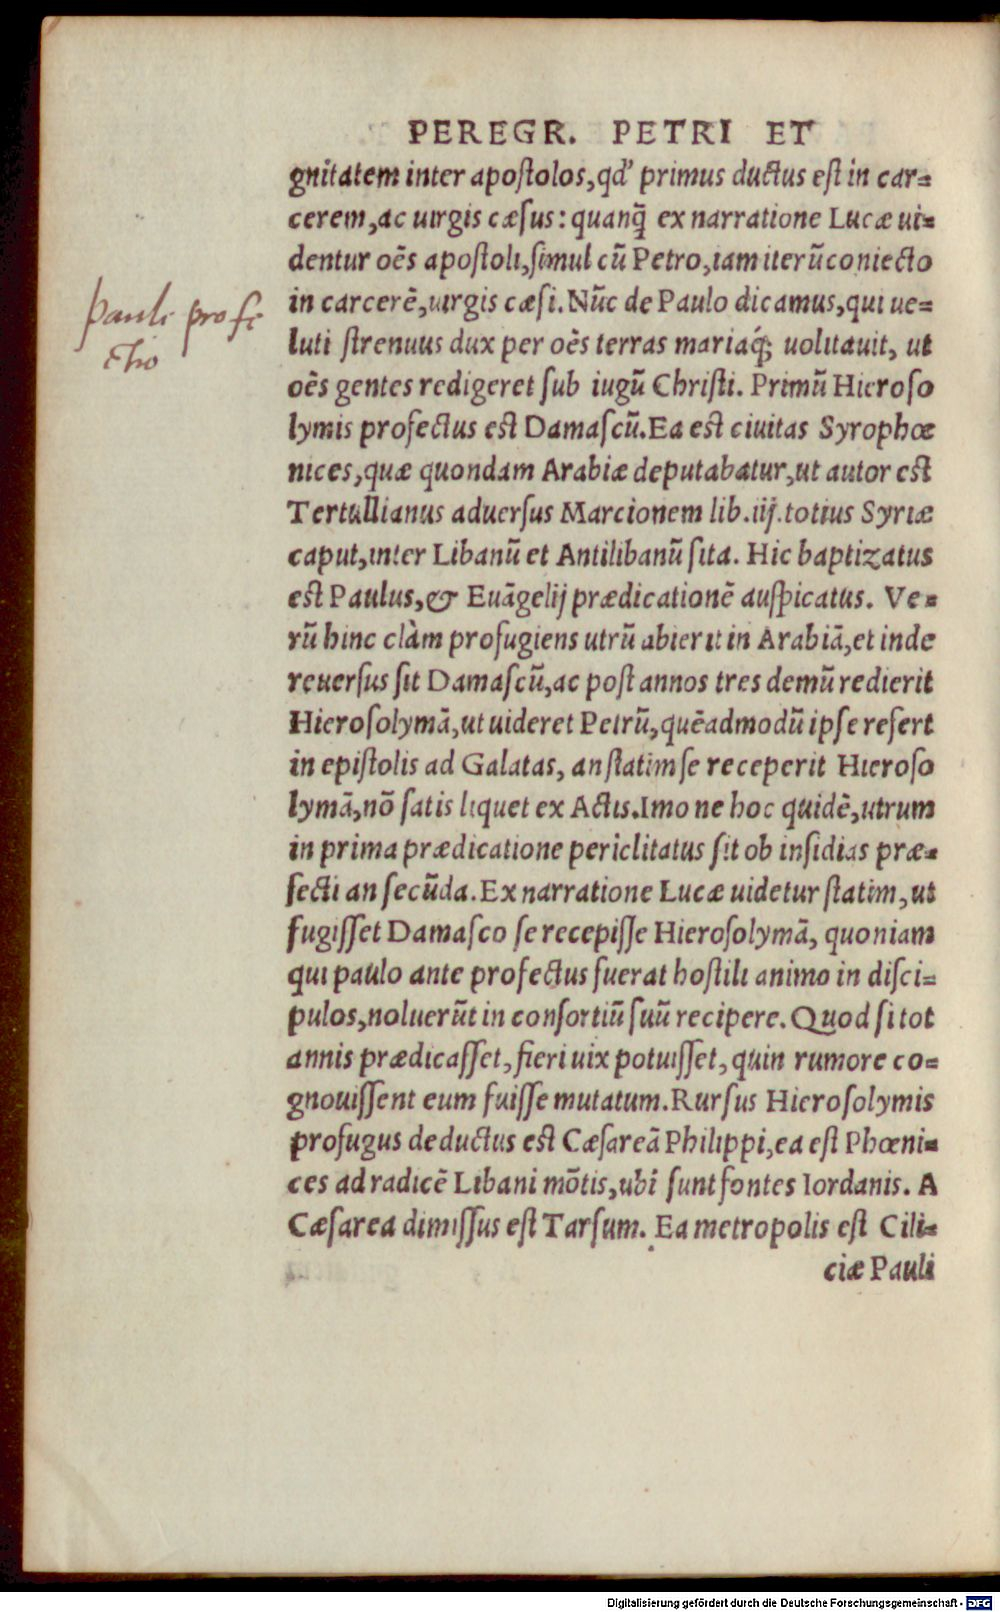 PEREGR. PETRI ET
gnitatem inter apoſtolos, qd' primus ductus eſt in car=
cerem, ac uirgis cæſus: quanq̃ ex narratione Lucæ ui=
dentur oẽs apoſtoli, ſimul cũ Petro, iam iterũ coniecto
in carcerẽ, uirgis cæſi. Nũc de Paulo dicamus, qui ue=
Pauli profe
ctio
luti ſtrenuus dux per oẽs terras mariaq́; uolitauit, ut
oẽs gentes redigeret ſub iugũ Chriſti. Primũ Hieroſo
lymis profectus eſt Damaſcũ. Ea eſt ciuitas Syrophœ
nices, quæ quondam Arabiæ deputabatur, ut autor eſt
Tertullianus aduerſus Marcionem lib. iij. totius Syriæ
caput, inter Libanũ et Antilibanũ ſita. Hic baptizatus
eſt Paulus, & Euãgelij prædicationẽ auſpicatus. Ve=
rũ hinc clàm profugiens utrũ abierit in Arabiã, et inde
reuerſus ſit Damaſcũ, ac poſt annos tres demũ redierit
Hieroſolymã, ut uideret Petrũ, quẽadmodũ ipſe refert
in epiſtolis ad Galatas, an ſtatim ſe receperit Hieroſo
lymã, nõ ſatis liquet ex Actis. Imo ne hoc quidẽ, utrum
in prima prædicatione periclitatus ſit ob inſidias præ=
fecti an ſecũda. Ex narratione Lucæ uidetur ſtatim, ut
fugiſſet Damaſco ſe recepiſſe Hieroſolymã, quoniam
qui paulo ante profectus fuerat hoſtili animo in diſci=
pulos, noluerũt in conſortiũ ſuũ recipere. Quod ſi tot
annis prædicaſſet, fieri uix potuiſſet, quin rumore co=
gnouiſſent eum fuiſſe mutatum. Rurſus Hieroſolymis
profugus deductus eſt Cæſareã Philippi, ea eſt Phœni=
ces ad radicẽ Libani mõtis, ubi ſunt fontes Iordanis. A
Cæſarea dimiſſus eſt Tarſum. Ea metropolis eſt Cili=
ciæ Pauli
Digitalisierung gefördert durch die Deutsche Forschungsgemeinschaft - DFG